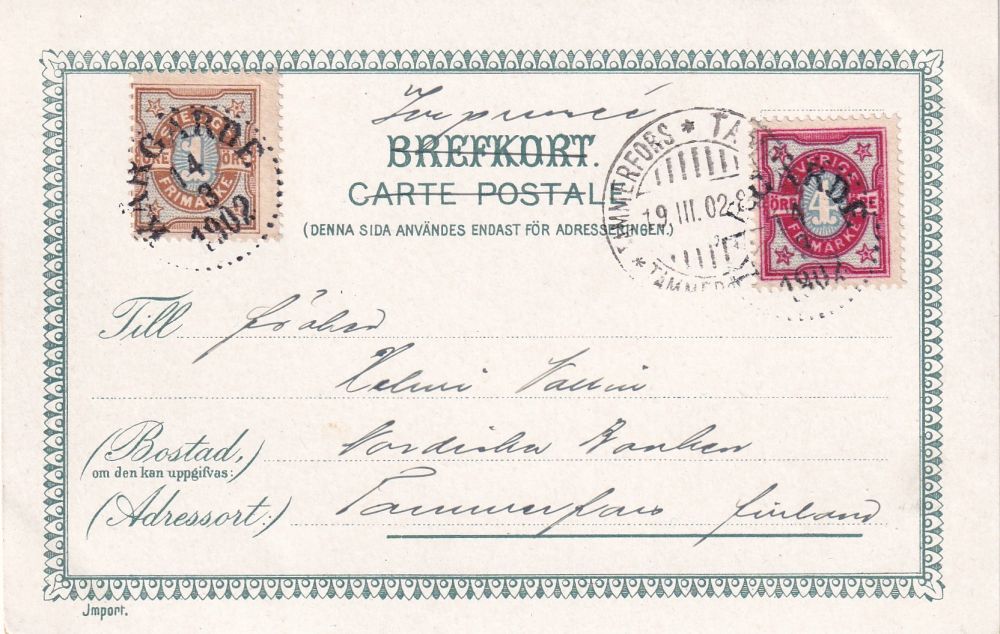 Imprimé
BREFKORT.
CARTE POSTALE
(DENNA SIDA ANVÄNDES ENDAST FÖR ADRESSERINGEN.)
SVERIGE
1
ÖRE ÖRE
FRIMÄRKE
4
3
1902
TAMMERFORS
19.III.02
TAMMERF
SVERIGE
4
ÖRE ÖRE
FRIMÄRKE
Till fröken
Helmi Wallin
(Bostad,) Nordiska Banken
om den kan uppgifvas:
(Adressort:) Tammerfors Finland
Jmport.